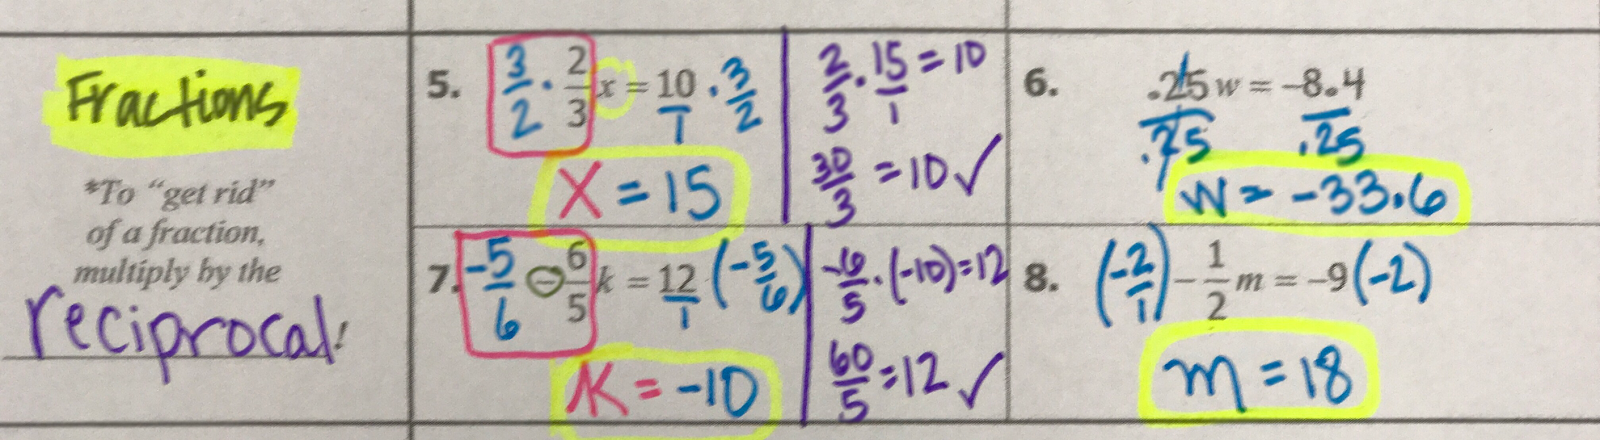 Fractions
*To "get rid"
of a fraction,
multiply by the
reciprocal!
5. 3/2 · 2/3 x = 10/1 · 3/2
x = 15
2/3 · 15/1 = 10
30/3 = 10 ✓
6. .25w = -8.4
.25 .25
w = -33.6
7. -5/6 - 6/5 k = 12/1 (-5/6)
K = -10
-6/5 · (-10) = 12
60/5 = 12 ✓
8. (-2/1) - 1/2 m = -9 (-2)
m = 18